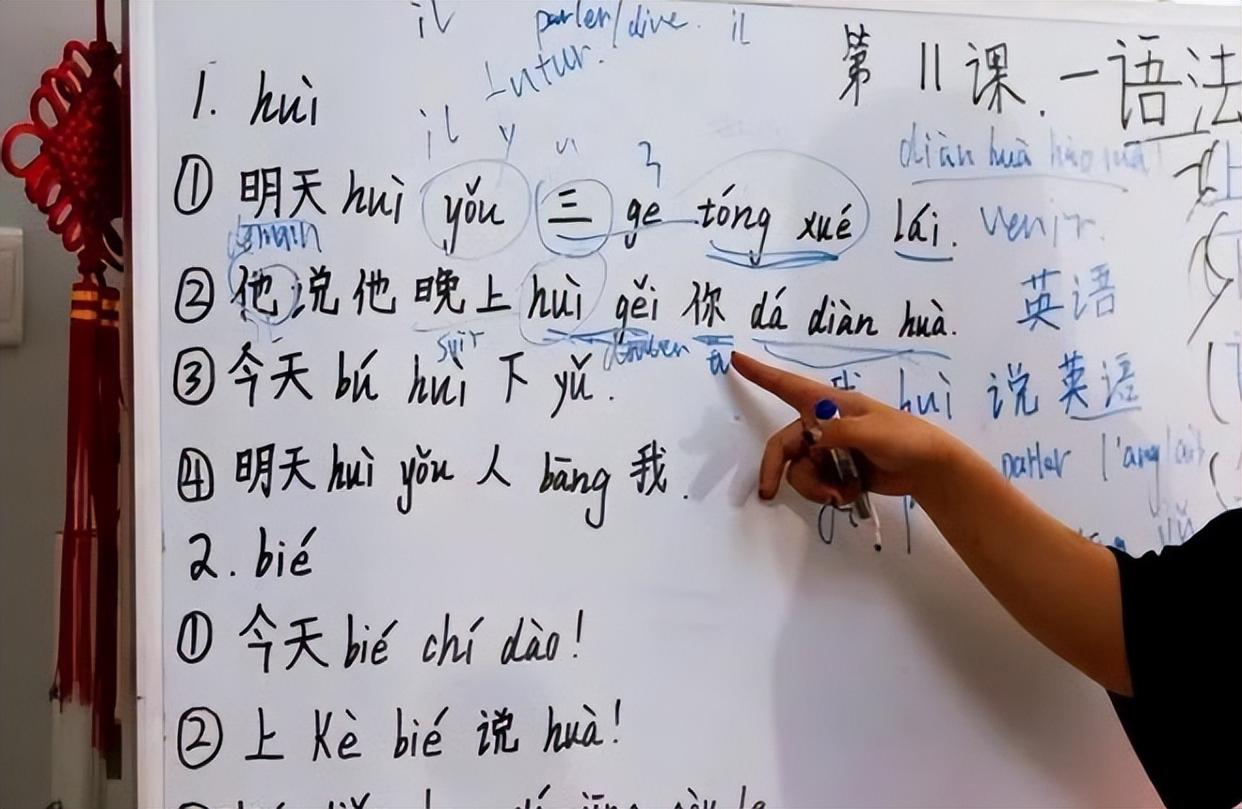 il parler/dire. il
futur.
第11课.一语法
1. huì
il y
diàn huà hǎo ma
①明天 huì yǒu 三 ge tóng xué lái. venir.
demain
②他说他晚上 huì gěi 你 dá diàn huà. 英语
soir tu
③今天 bú huì 下 yǔ. 我 huì 说英语
parler l'anglais
④明天 huì yǒu 人 bāng 我.
2. bié
①今天 bié chí dào!
②上 Kè bié 说 huà!